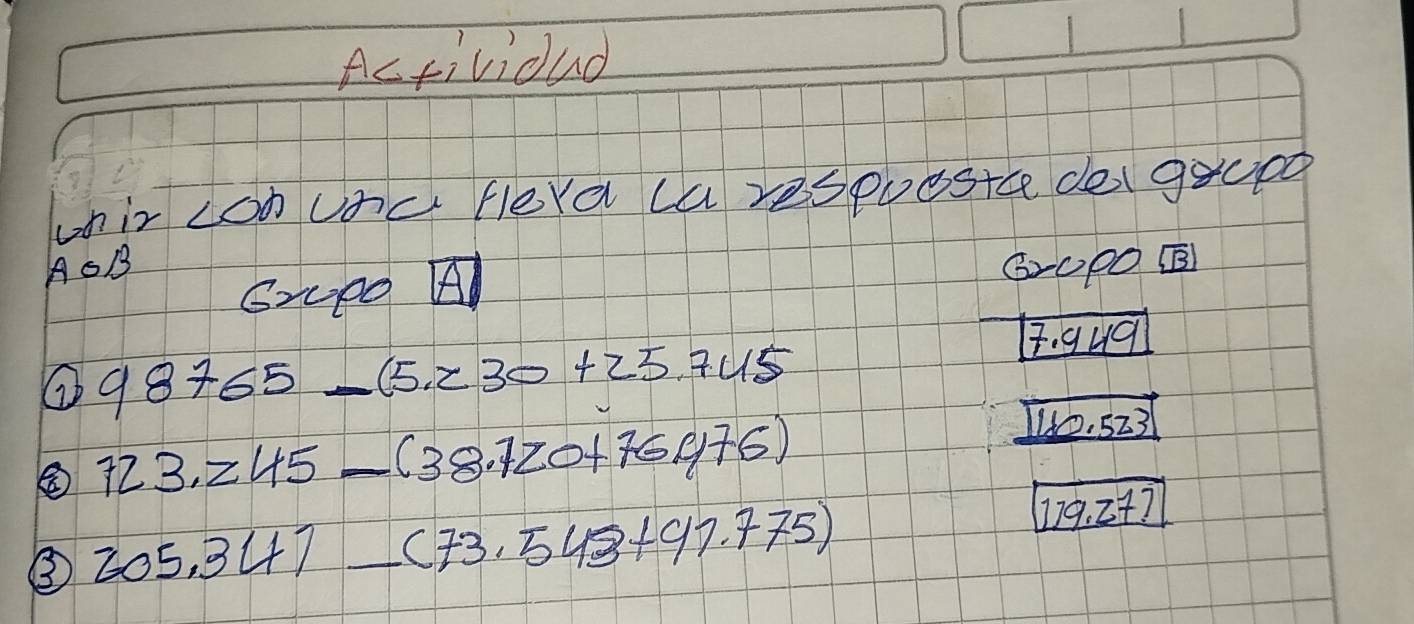 Actividad
unir con una flexa la respuesta del grupo
A o B
Grupo A
Grupo B
① 98765 - (5.230 + 25.745
7.949
② 123.245 - (38.120 + 76.976)
40.523
③ 205.341 - (73.543 + 91.775)
119.271